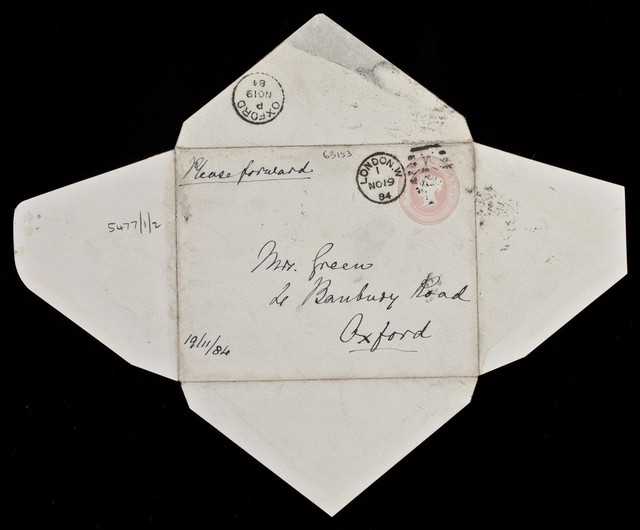 OXFORD
P
NO 19
84
Please forward
63153
LONDON.W
1
NO 19
84
5477/1/2
Mrs. Green
Banbury Road
Oxford
19/11/84